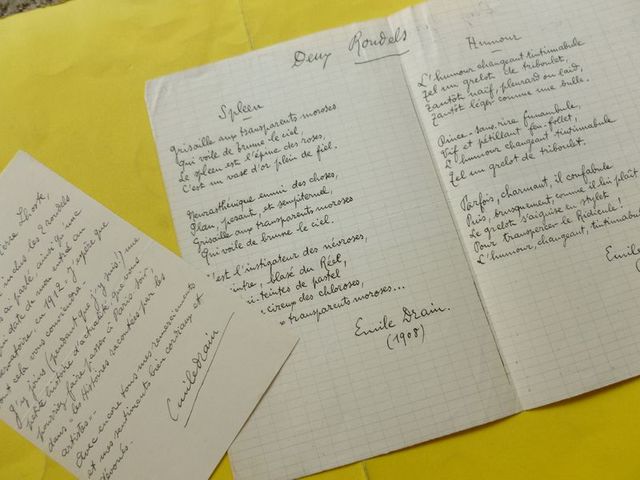 Deux Rondels
Spleen
Grisaille aux transparents moroses
Qui voile de brume le ciel,
Le spleen est l'épine des roses,
C'est un vase d'or plein de fiel.
Neurasthénique ennui des choses,
Plan, pesant, et sempiternel,
Grisaille aux transparents moroses
Qui voile de brume le ciel.
C'est l'instigateur des névroses,
blasé du Réel,
teintes de pastel
cireux des chloroses,
transparents moroses...
Emile Drain.
(1908)
Humour
L'humour changeant tintinnabule
Tel un grelot de triboulet,
Tantôt naïf, pleurard ou laid,
Tantôt léger comme une bulle.
Pince-sans-rire funambule,
Vif et pétillant feu-follet,
L'humour changeant tintinnabule
Tel un grelot de triboulet.
Parfois, charmant, il confabule
Puis, brusquement, comme il lui plaît
Le grelot s'aiguise en stylet
Pour transpercer le Ridicule!
L'humour, changeant, tintinnabul
Emile
les 2 rondels
a parlé
date de mon entrée au
ca 1912. J'espère que
cela vous conviendra.
J'y joins (pendant que j'y suis!) une
petite histoire d'actualité que vous
pourriez faire passer à Paris-Soir,
dans les Histoires racontées par les
artistes...
Avec encore tous mes remerciements
et mes sentiments bien cordiaux et
dévoués.
Emile Drain